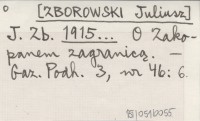 [ZBOROWSKI Juliusz]
J. Zb. 1915... O Zako-
panem zagranicą. —
Gaz. Podh. 3, nr 46: 6.